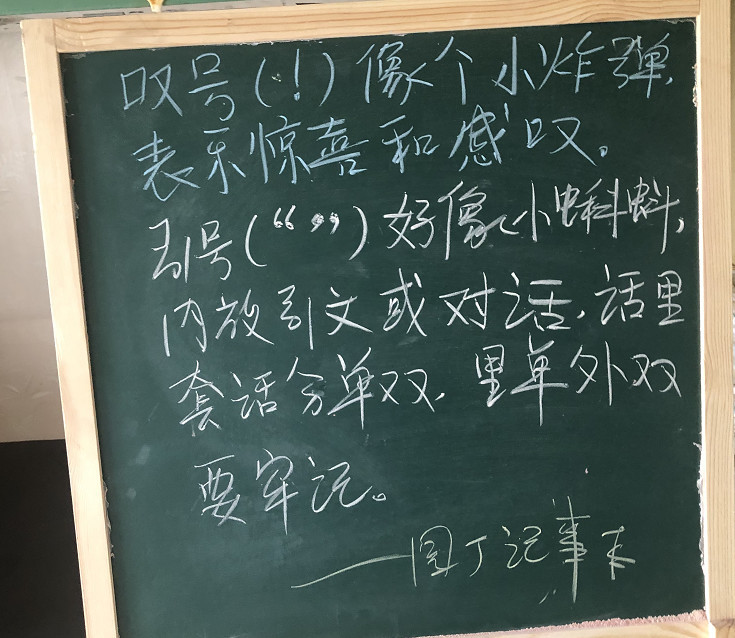 叹号(!)像个小炸弹,
表示惊喜和感叹。
引号(“ ”)好像小蝌蚪,
内放引文或对话.话里
套话分单双,里单外双
要牢记。
——园丁记事本